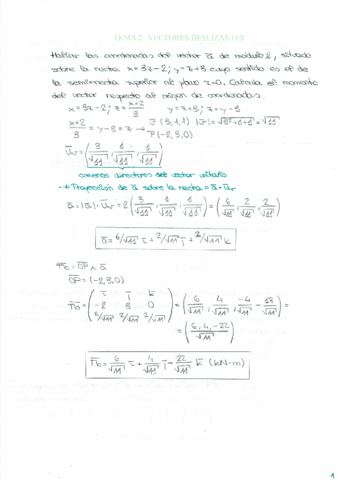 TEMA 2: VECTORES DESLIZANTES
Hallar las coordenadas del vector ā de módulo 2, situado
sobre la recta x=3z-2; y=z+3 cuyo sentido es el de
la semirrecta superior al plano z=0. Calcula el momento
del vector respecto al origen de coordenadas.
x=3z-2; z=(x+2)/3 y=z+3; z=y-3
(x+2)/3 = y-3 = z → r̄ (3,1,1) |r̄| = √(3²+1+1) = √11
P(-2,3,0)
ūr = (3/√11, 1/√11, 1/√11)
cosenos directores del vector unitario
→ Proyección de ā sobre la recta = ā·ūr
ā = |ā|·ūr = 2(3/√11, 1/√11, 1/√11) = (6/√11, 2/√11, 2/√11)
ā = 6/√11 i + 2/√11 j + 2/√11 k
M̄o = OP ∧ ā
OP = (-2,3,0)
M̄o = (i j k
-2 3 0
6/√11 2/√11 2/√11) = (6/√11, 4/√11, -4/√11 - 18/√11) =
= (6,4,-22)/√11
M̄o = 6/√11 i + 4/√11 j - 22/√11 k (kN·m)
1